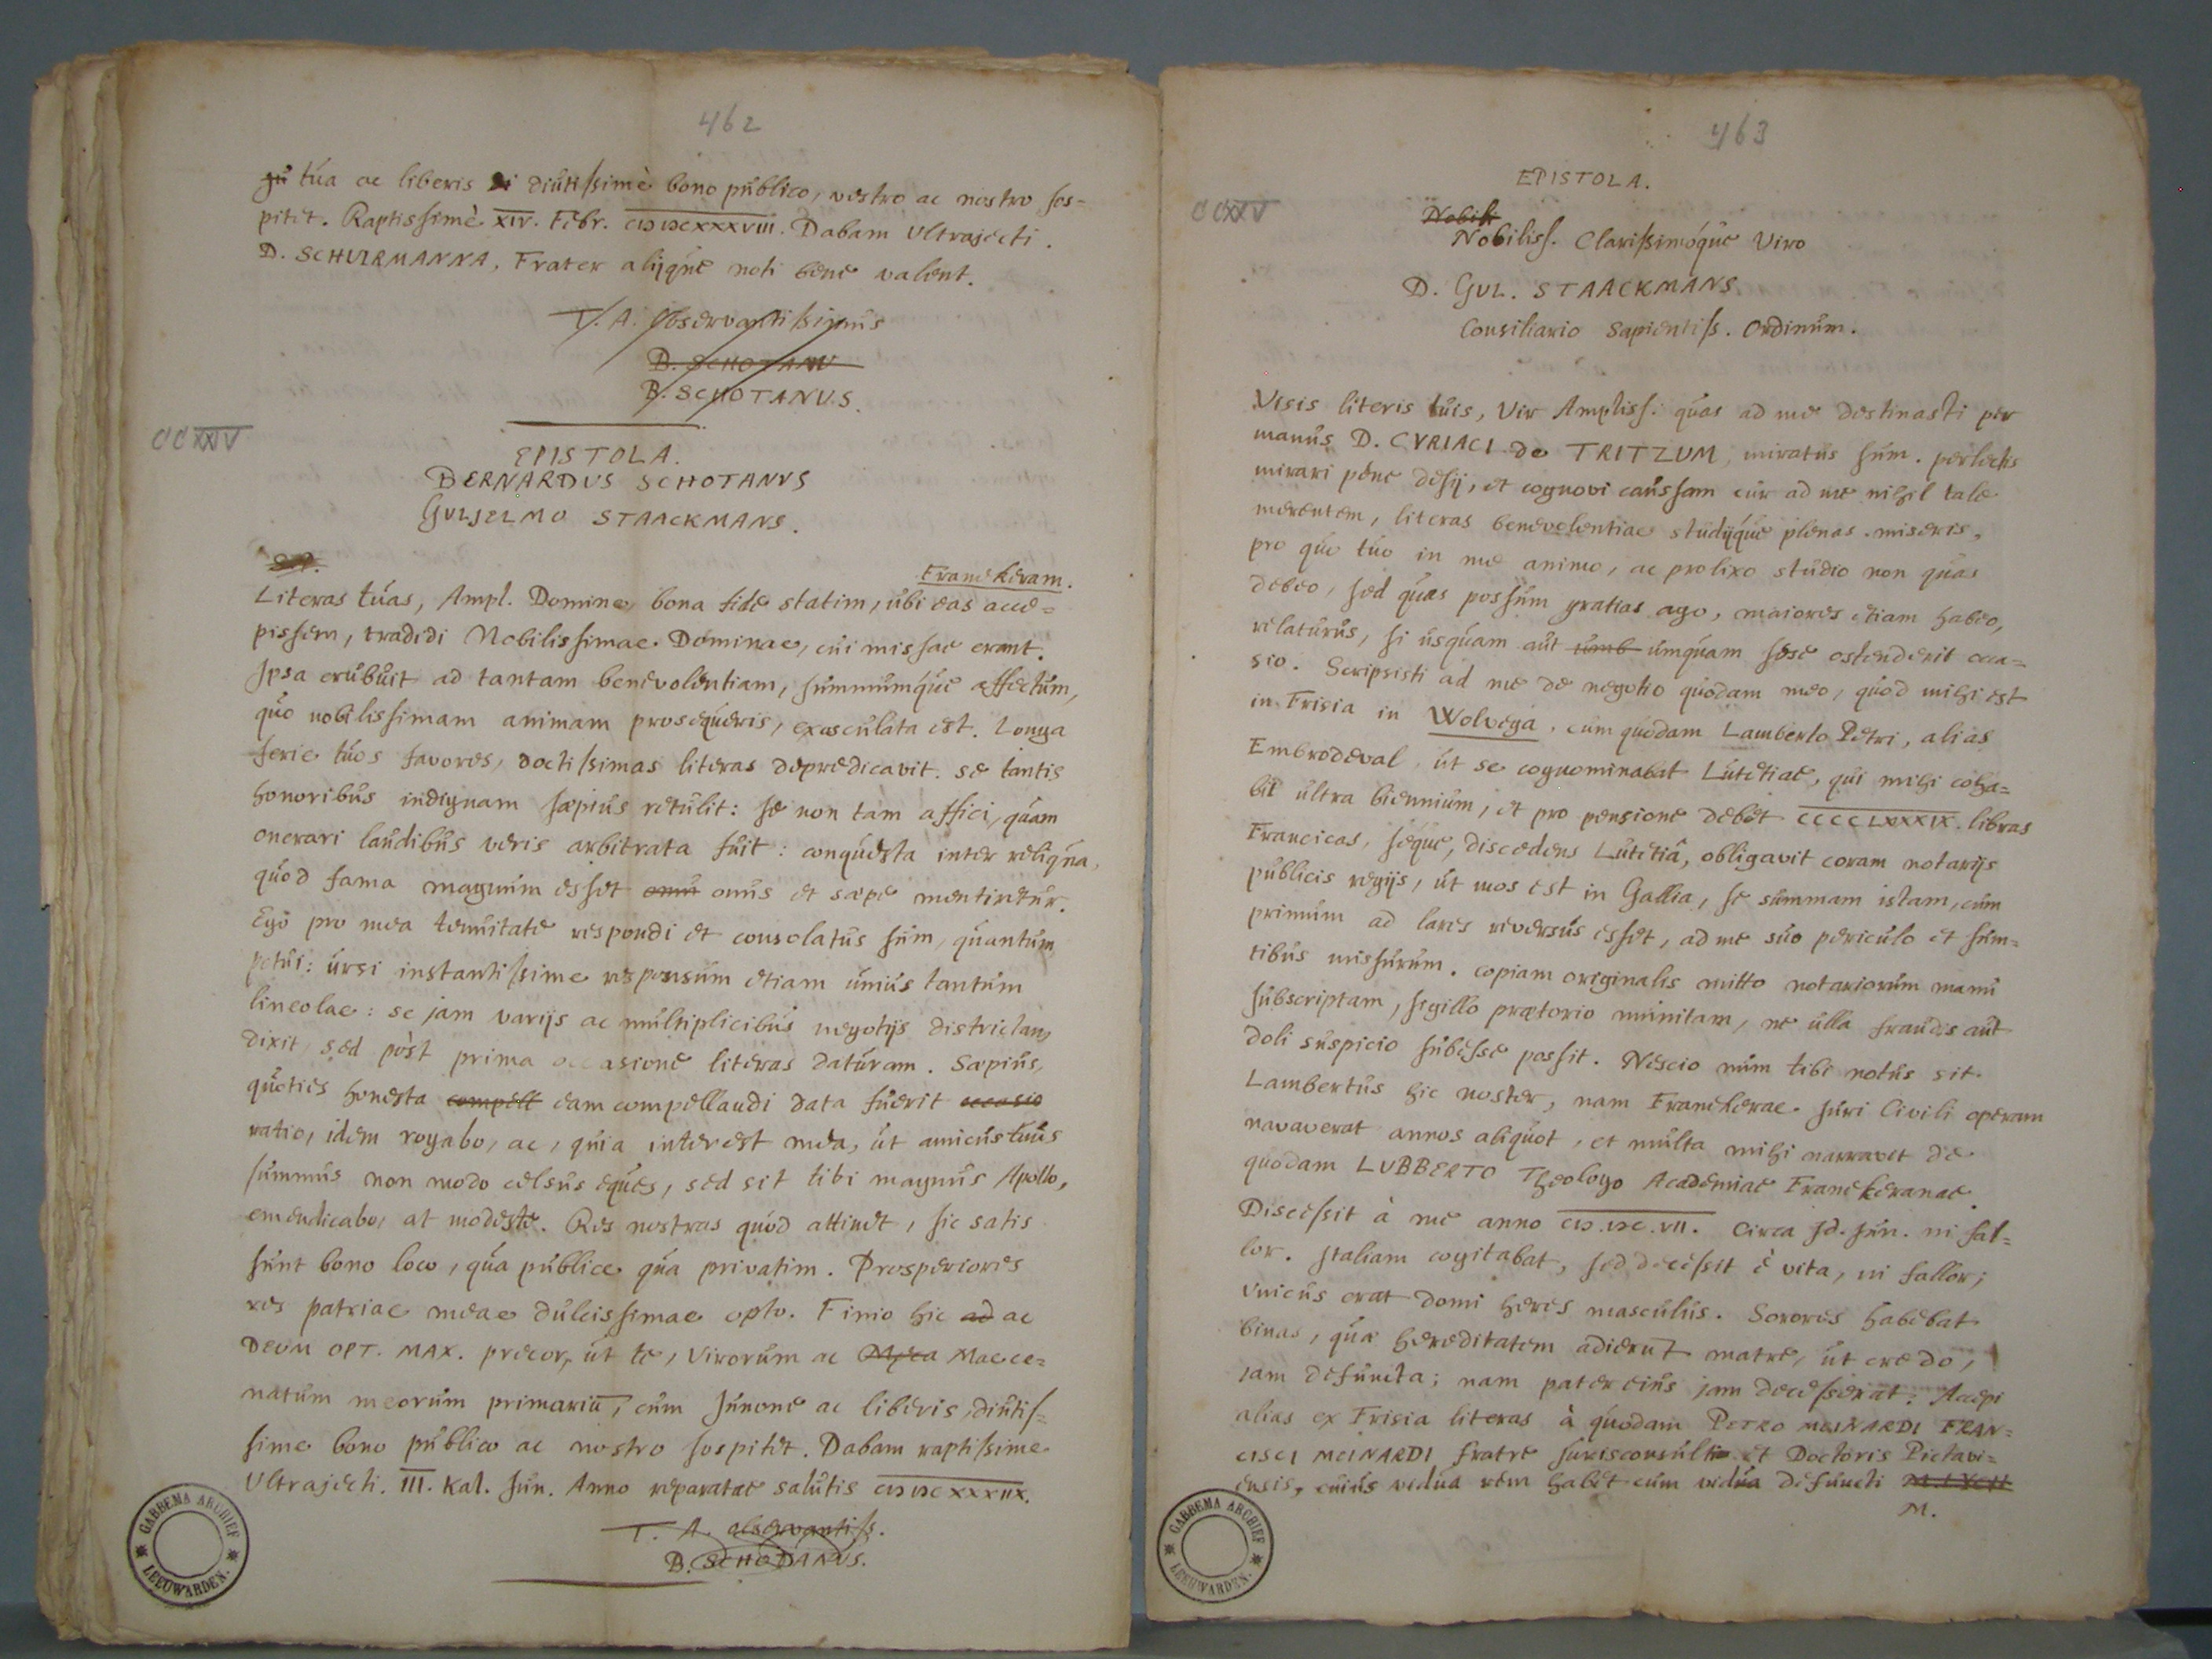 462
gu tua ac liberis di diutissimè bono publico, vestro ac nostro sos=
pitet. Raptissimè XIV. Febr. CIƆ IƆCXXXVIII. Dabam Ultrajecti.
D. SCHURMANNA, Frater alijque noti bene valent.
T. A. observantissimus
B. SCHOTANU
B. SCHOTANUS.
CCXXIV
EPISTOLA.
BERNARDUS SCHOTANUS
GULIELMO STAACKMANS.
S.P.
Franekeram.
Literas tuas, Ampl. Domine, bona fide statim, ubi eas acce=
pissem, tradidi Nobilissimae Dominae, cui missae erant.
Ipsa erubuit ad tantam benevolentiam, summumque affectum,
quo nobilissimam animam prosequeris, exosculata est. Longa
serie tuos favores, doctissimas literas depredicavit. se tantis
honoribus indignam saepius retulit: se non tam affici, quam
onerari laudibus veris arbitrata fuit: conquesta inter reliqua,
quod fama magnum esset onus et saepe mentiretur.
Ego pro mea tenuitate respondi et consolatus sum, quantum
potui: ursi instantissime responsum etiam unius tantum
lineolae: se jam varijs ac multiplicibus negotijs districtam
dixit, sed pòst prima occasione literas daturam. Saepius,
quoties honesta compell eam compellandi data fuerit occasio
ratio, idem rogabo, ac, quia interest mea, ut amicus tuus
summus non modo celsus eques, sed sit tibi magnus Apollo,
emendicabo, at modeste. Res nostras quod attinet, sic satis
sunt bono loco, qua publice qua privatim. Prosperiores
res patriae meae dulcissimae opto. Finio hic ad ac
DEUM OPT. MAX. precor, ut te, Virorum ac Maece=
natum meorum primariū, cum Junone ac liberis, diutis=
sime bono publico ac nostro sospitet. Dabam raptissime
Ultrajecti. III. Kal. Jun. Anno reparatae salutis CIƆ IƆC XXXIIX.
T. A. observantiss.
B. SCHOTANUS.
GABBEMA ARCHIEF LEEUWARDEN.
463
CCXXV
EPISTOLA.
Nobili
Nobiliss. Clarissimóque Viro
D. GUL. STAACKMANS
Consiliario Sapientiss. Ordinum.
Visis literis tuis, Vir Ampliss. quas ad me destinasti per
manus D. CYRIACI de TRITZUM, miratus sum. perlectis
mirari pene desij, et cognovi caussam cur ad me nihil tale
merentem, literas benevolentiae studijque plenas miseris,
pro quo tuo in me animo, ac prolixo studio non quas
debeo, sed quas possum gratias ago, maiores etiam habeo,
relaturus, si usquam aut umb umquam sese ostenderit occa=
sio. Scripsisti ad me de negotio quodam meo, quod mihi est
in Frisia in Wolvega, cum quodam Lamberto Petri, alias
Embrodeval, ut se cognominabat Lutetiae, qui mihi coha=
bit ultra biennium, et pro pensione debet CCCCLXXXIX. libras
Francicas, seque, discedens Lutetiâ, obligavit coram notarijs
publicis regijs, ut mos est in Gallia, se summam istam, cum
primum ad lares reversus esset, ad me suo periculo et sum=
tibus missurum. copiam originalis mitto notariorum manu
subscriptam, sigillo praetorio munitam, ne ulla fraudis aut
doli suspicio subesse possit. Nescio num tibi notus sit
Lambertus hic noster, nam Franekerae Juri Civili operam
navaverat annos aliquot, et multa mihi narravit de
quodam LUBBERTO Theologo Academiae Franekeranae.
Discessit à me anno CIƆ.IƆC.VII. circa Id. Jun. ni fal=
lor. Italiam cogitabat, sed decessit è vita, ni fallor;
vnicus erat domi heres masculus. Sorores habebat
binas, quae hereditatem adierunt matre, ut credo,
jam defuncta; nam pater eius jam decesserat: Accepi
alias ex Frisia literas à quodam PETRO MEINARDI FRAN=
CISCI MEINARDI fratre Jurisconsulti et Doctoris Pictavi=
ensis, cuius vidua rem habet cum vidua defuncti
M.
GABBEMA ARCHIEF LEEUWARDEN.